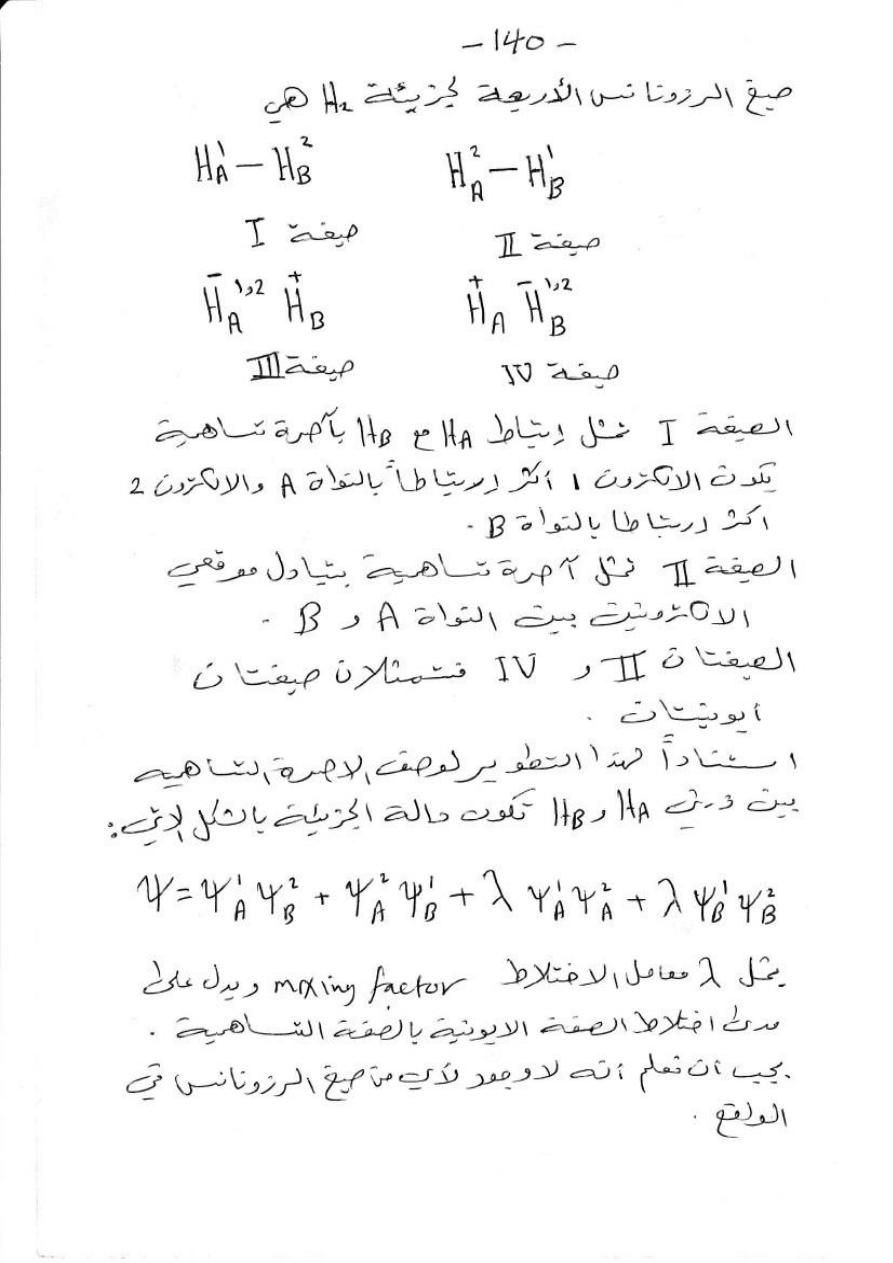 - 140 -
صيغ الرزونانس الأربعة لجزيئة H₂ هي
H_A^1 — H_B^2    H_A^2 — H_B^1
صيغة I    صيغة II
H̄_A^{1,2} H⁺_B    H⁺_A H̄_B^{1,2}
صيغة III    صيغة IV
الصيغة I تمثل إرتباط H_A مع H_B بآصرة تساهمية
يكون الالكترون 1 أكثر إرتباطاً بالنواة A والالكترون 2
اكثر ارتباطا بالنواة B.
الصيغة II تمثل آصرة تساهمية بتبادل موقعي
الالكترونين بين النواة A و B.
الصيغتان II و IV فتمثلان صيغتان
أيونيتان.
استناداً لهذا التطوير لوصف الاصرة التساهمية
بين ذرتي H_A و H_B تكون دالة الجزيئة بالشكل الاتي:
Ψ = Ψ_A^1 Ψ_B^2 + Ψ_A^2 Ψ_B^1 + λ Ψ_A^1 Ψ_A^2 + λ Ψ_B^1 Ψ_B^2
يمثل λ معامل الاختلاط mixing factor ويدل على
مدى اختلاط الصفة الايونية بالصفة التساهمية.
يجب أن نعلم أنه لا وجود لأي من صيغ الرزونانس في
الواقع.